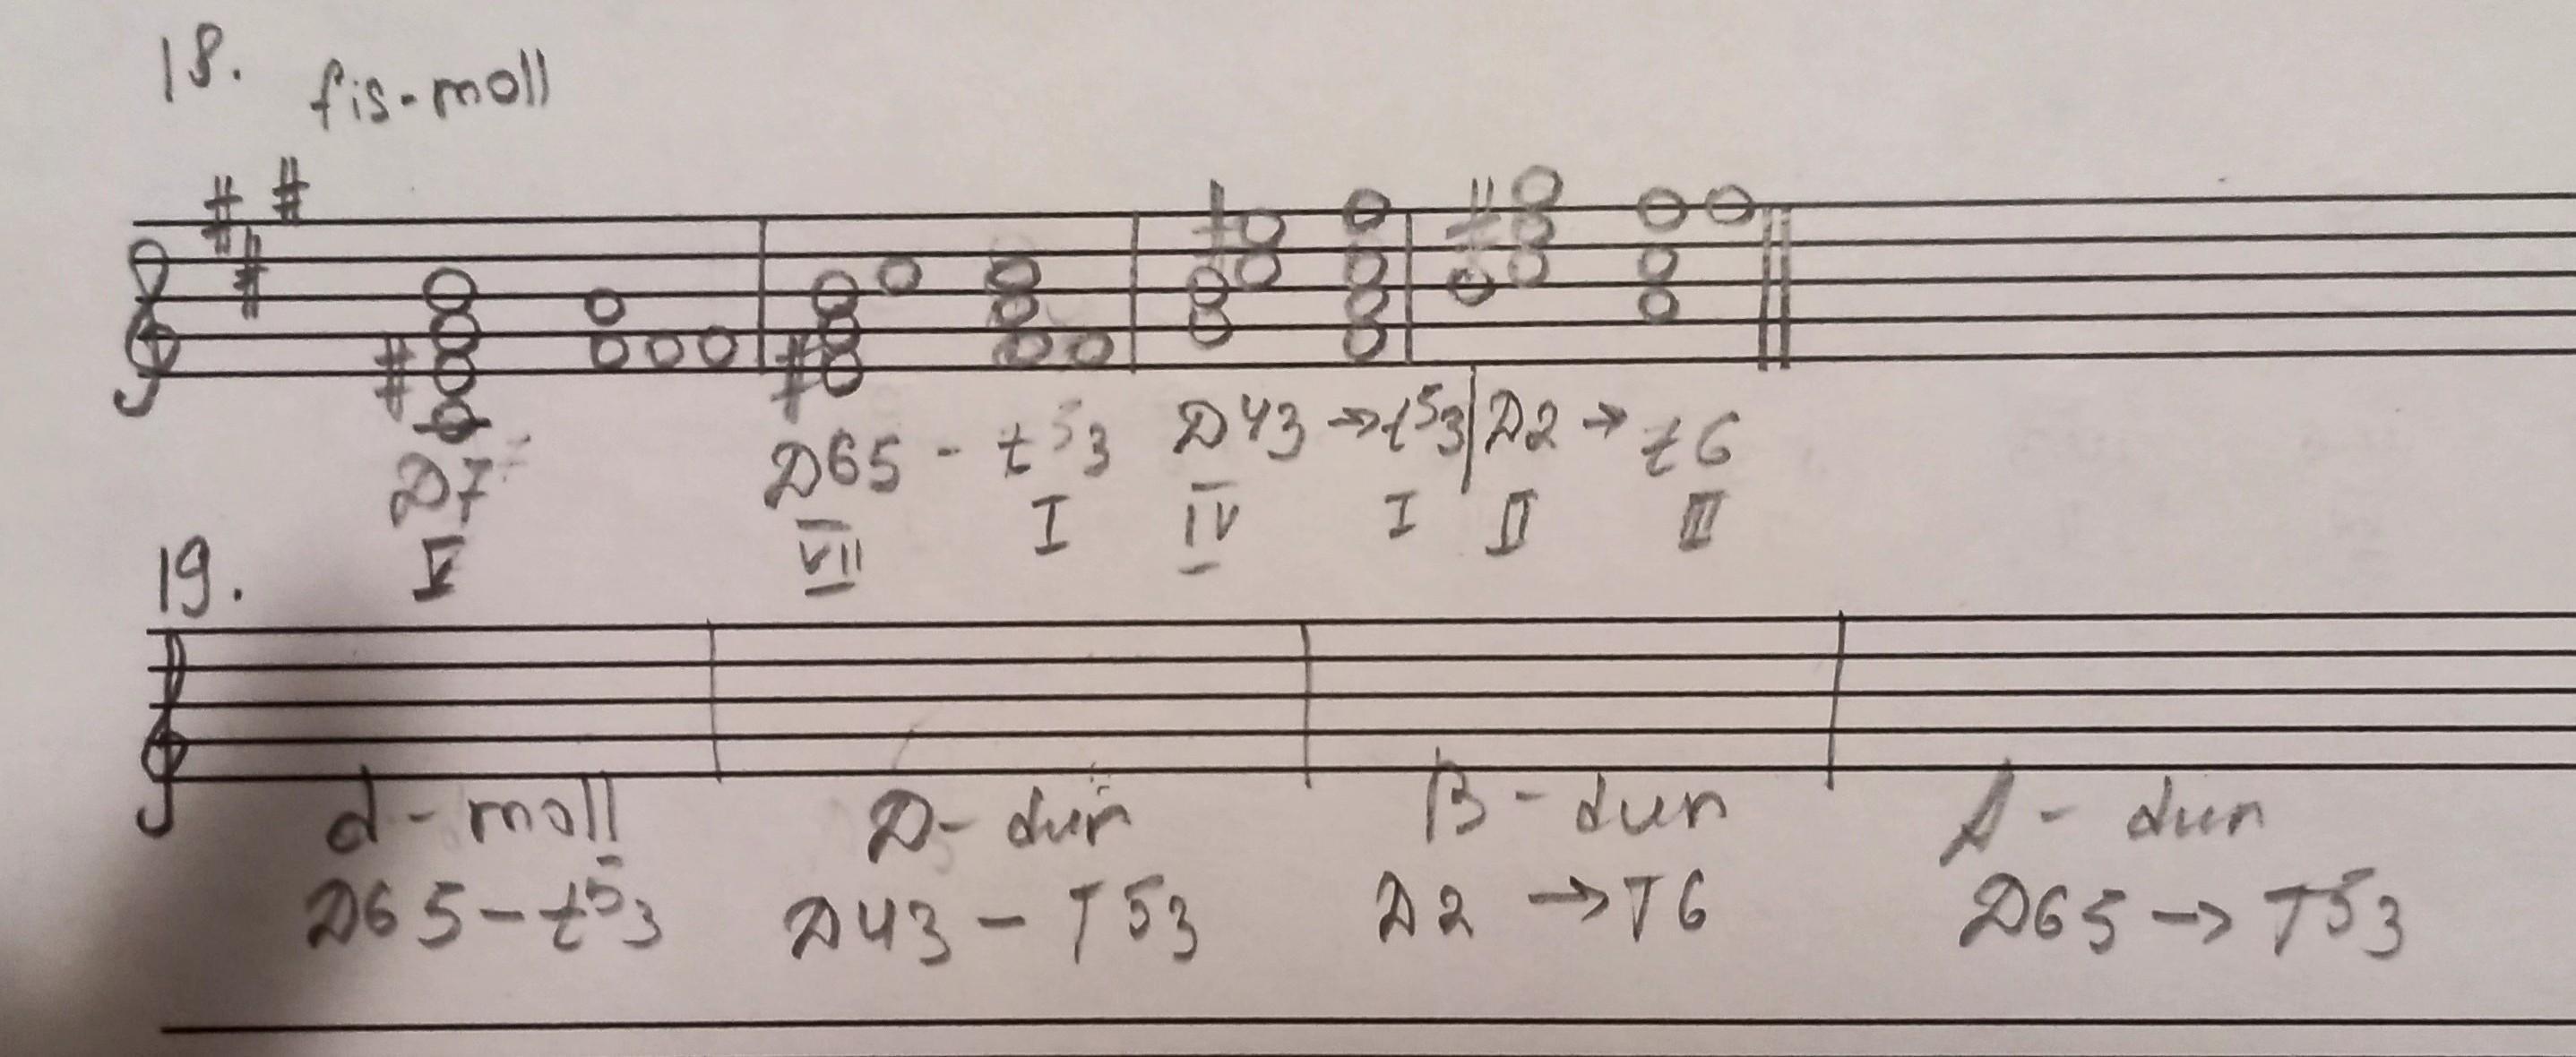 18. fis-moll
D7 D65 - t53 D43 → t53 | D2 → t6
V VII I IV I II III
19.
d-moll D-dur B-dur A-dur
D65 - t53 D43 - T53 D2 → T6 D65 → T53